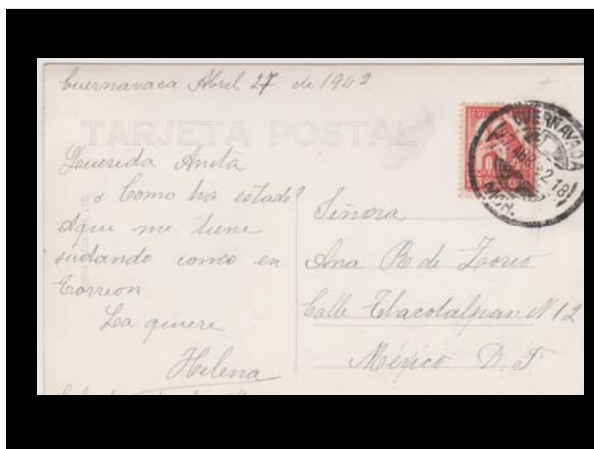 Cuernavaca Abril 27 de 1942
TARJETA POSTAL
Querida Anita
¿ Como ha estado?
Aqui me tiene
sudando como en
Torreon
La quiere
Helena
Señora
Ana R de
Calle Tlacotalpan Nº 12
México D. F.
CUERNAVACA
MOR.